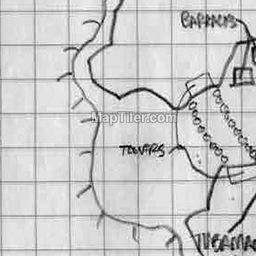 BARRACKS
MapTiler.com
TOWERS